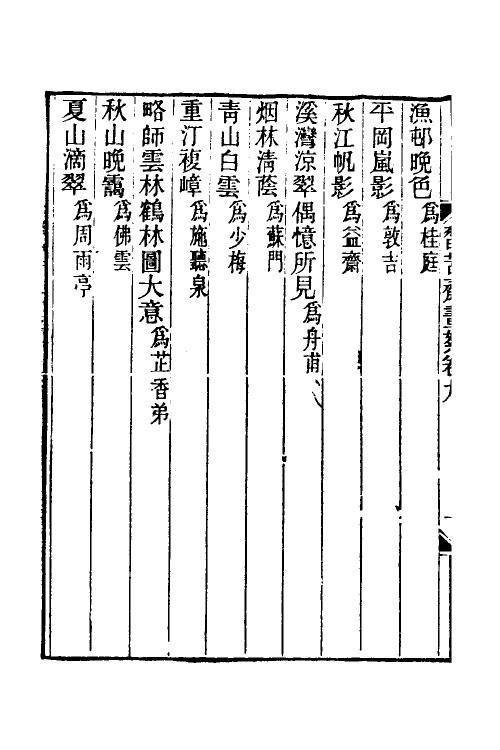 漁邨晚色為桂庭
平岡嵐影為敦吉
秋江帆影為益齋
溪灣涼翠偶憶所見為舟甫
烟林淸蔭為蘇門
靑山白雲為少梅
重汀複嶂為施聽泉
略師雲林鶴林圖大意為芷香弟
秋山晚靄為佛雲
夏山滴翠為周雨亭